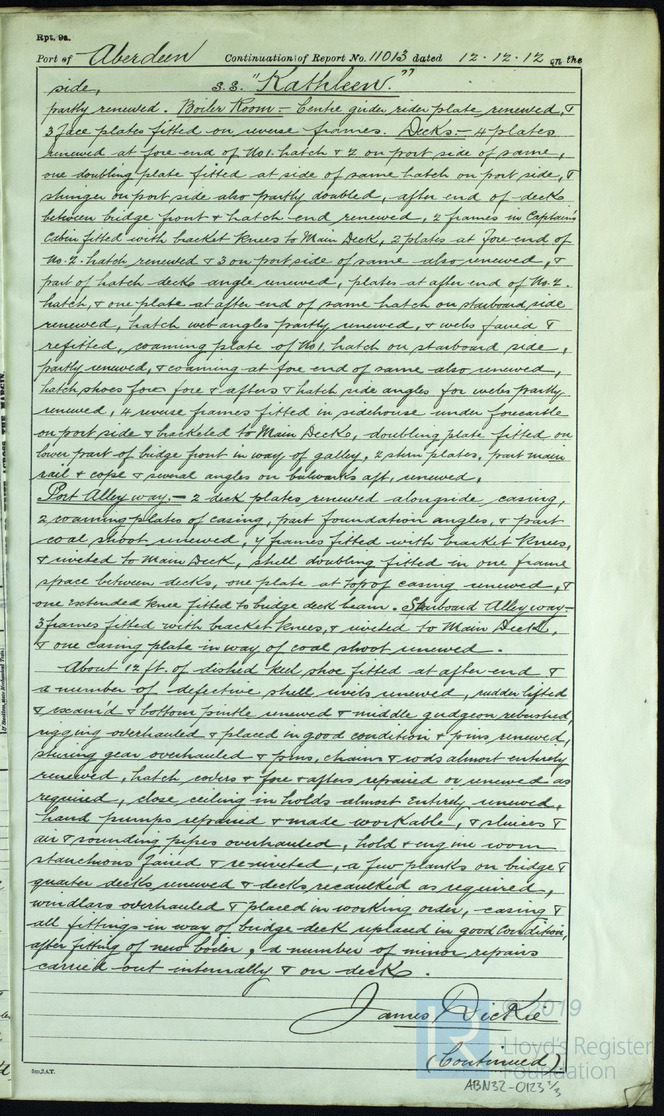 Rpt. 9a.
Port of Aberdeen Continuation of Report No. 11013 dated 12.12.12 on the
side, s.s. "Kathleen."
partly renewed. Boiler Room:- Centre girder rider plate renewed, &
3 face plates fitted on reverse frames. Decks:- 4 plates
renewed at fore end of No1. hatch & 2 on port side of same,
one doubling plate fitted at side of same hatch on port side, &
stringer on port side also partly doubled, after end of decks
between bridge front & hatch end renewed, 2 frames in Captain's
Cabin fitted with bracket knees to Main Deck, 2 plates at fore end of
No. 2. hatch renewed & 3 on port side of same also renewed, &
part of hatch decks angle renewed, plates at after end of No. 2.
hatch, & one plate at after end of same hatch on starboard side
renewed, hatch web angles partly renewed, & webs faired &
refitted, coaming plate of No1. hatch on starboard side,
partly renewed, & coaming at fore end of same also renewed,
hatch shoes for fore & afters & hatch side angles for webs partly
renewed, 4 reverse frames fitted in sidehouse under forecastle
on port side & bracketed to Main Decks, doubling plate fitted on
lower part of bridge front in way of galley, 2 stern plates, part main
rail & cope & several angles on bulwarks aft, renewed.
Port Alley way:- 2 deck plates renewed alongside casing,
2 coaming plates of casing, part foundation angles, & part
coal shoot renewed, 4 frames fitted with bracket knees,
& riveted to Main Deck, shell doubling fitted in one frame
space between decks, one plate at top of casing renewed, &
one extended knee fitted to bridge deck beam. Starboard Alley way-
3 frames fitted with bracket knees, & riveted to Main Deck,
& one casing plate in way of coal shoot renewed.
About 12 ft. of dished keel shoe fitted at after end &
a number of defective shell rivets renewed, rudder lifted
& exam'd & bottom pintle renewed & middle gudgeon rebushed,
rigging overhauled & placed in good condition & pins renewed,
steering gear overhauled & pins, chains & rods almost entirely
renewed, hatch covers & fore & afters repaired or renewed as
required, close ceiling in holds almost entirely renewed,
hand pumps repaired & made workable, & sluices &
air & sounding pipes overhauled, hold & engine room
stanchions faired & reriveted, a few planks on bridge &
quarter decks renewed & decks recaulked as required,
windlass overhauled & placed in working order, casing &
all fittings in way of bridge deck replaced in good condition,
after fitting of new boiler, a number of minor repairs
carried out internally & on deck.
James Dickie
(Continued)
© 2019
LR Lloyd's Register
Foundation
ABN32-0123 2/3